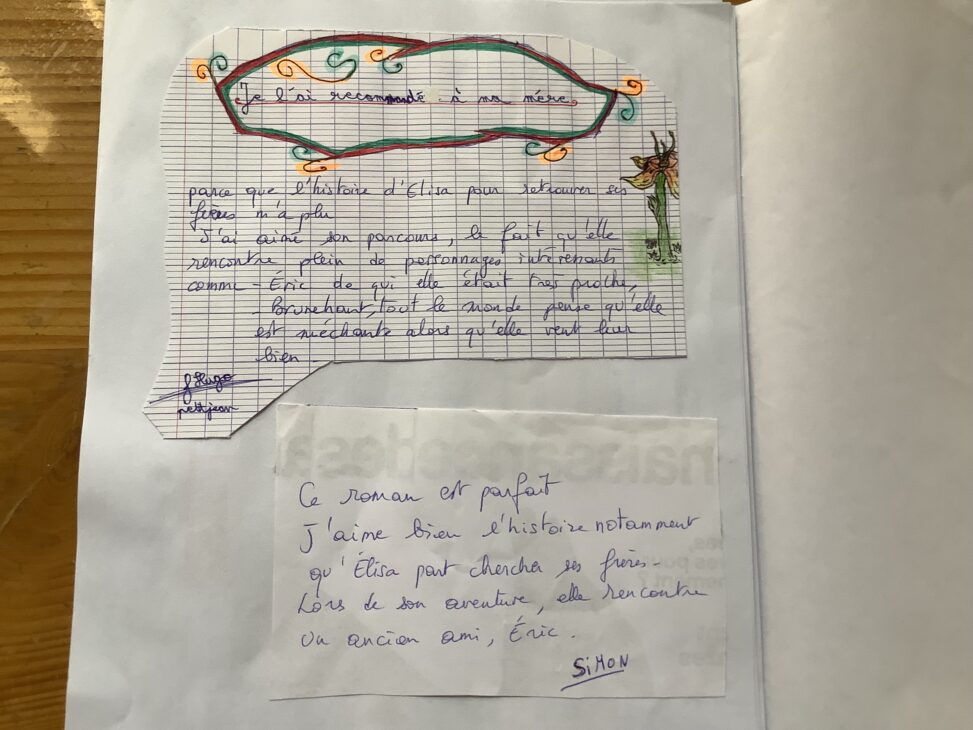 Je l'ai recommandé à ma mère
parce que l'histoire d'Elisa pour retrouver ses
frères m'a plu
J'ai aimé son parcours, le fait qu'elle
rencontre plein de personnages intéressants
comme - Éric de qui elle était très proche,
- Brunehaut, tout le monde pense qu'elle
est méchante alors qu'elle veut leur
bien
Hugo
petitjean
Ce roman est parfait
J'aime bien l'histoire notamment
qu'Élisa part chercher ses frères.
Lors de son aventure, elle rencontre
un ancien ami, Éric.
SIMON